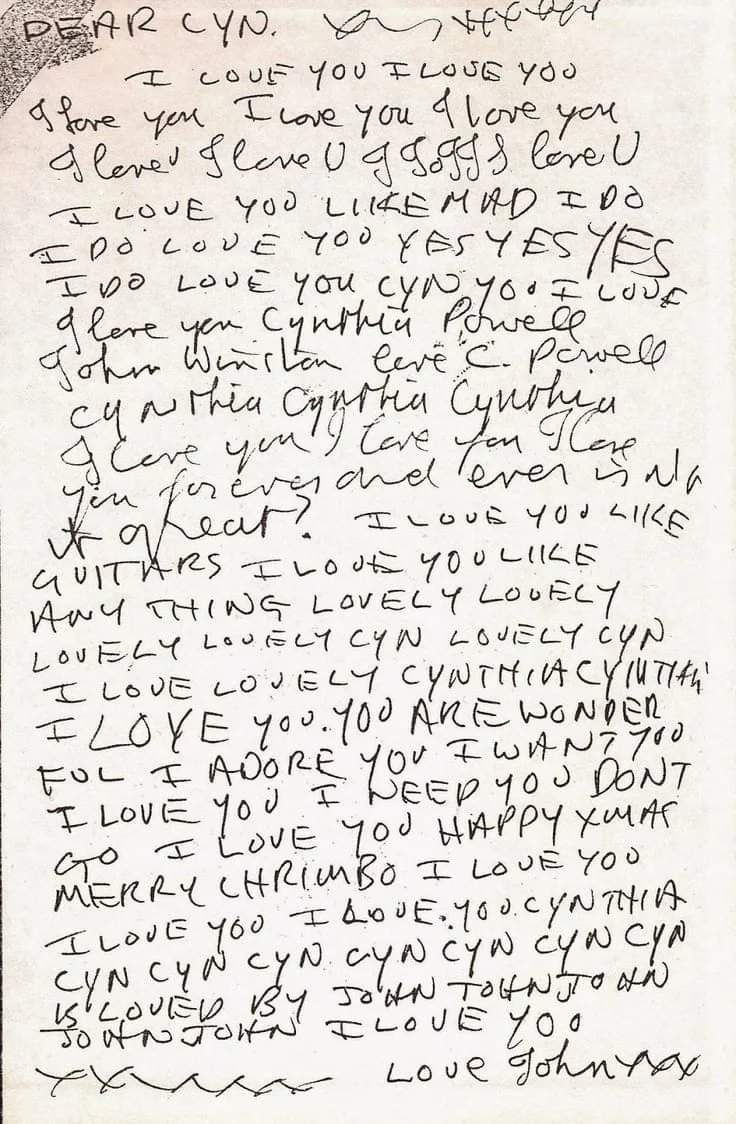 DEAR CYN.
I LOVE YOU I LOVE YOU
I love you I love you I love you
I love U I love U I I I I I love U
I LOVE YOU LIKE MAD I DO
I DO LOVE YOU YES YES YES
I DO LOVE YOU CYN YOU I LOVE
I love you Cynthia Powell
John Winston love C. Powell
Cynthia Cynthia Cynthia
I love you I love you I love
you forever and ever isn't
it great? I LOVE YOU LIKE
GUITARS I LOVE YOU LIKE
ANYTHING LOVELY LOVELY
LOVELY LOVELY CYN LOVELY CYN
I LOVE LOVELY CYNTHIA CYNTHIA
I LOVE YOU. YOU ARE WONDER
FUL I ADORE YOU I WANT YOU
I LOVE YOU I NEED YOU DONT
GO I LOVE YOU HAPPY XMAS
MERRY CHRIMBO I LOVE YOU
I LOVE YOU I LOVE. YOU. CYNTHIA
CYN CYN CYN CYN CYN CYN CYN
IS LOVED BY JOHN JOHN JOHN
JOHN JOHN I LOVE YOU
LOVE John xxx